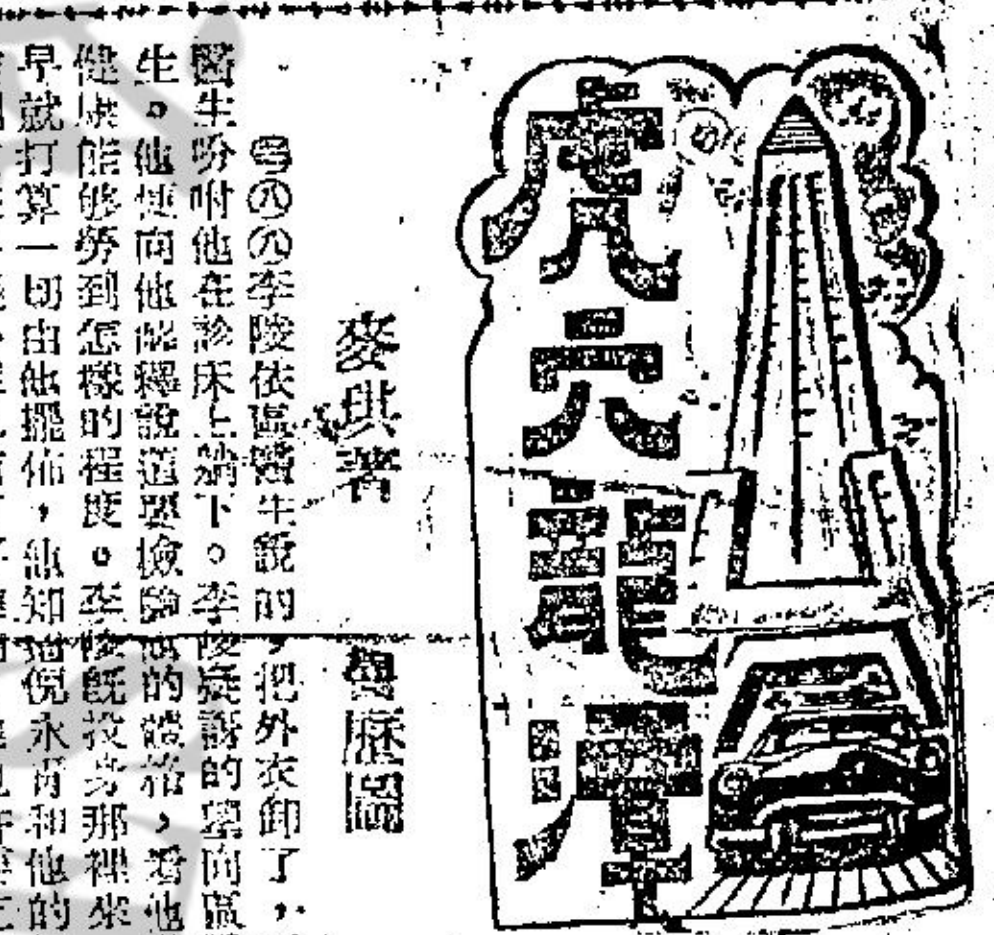 虎穴龍潭
麥琪著
李陵依區醫生說的，把外衣卸了，
醫生吩咐他在診床上躺下。李陵疑訝的望向區
生。他便向他解釋說道要檢驗他的體格，看他
健康能够勞到怎樣的程度。李陵既投身那裡來
早就打算一切由他擺佈，他知道倪永和他的